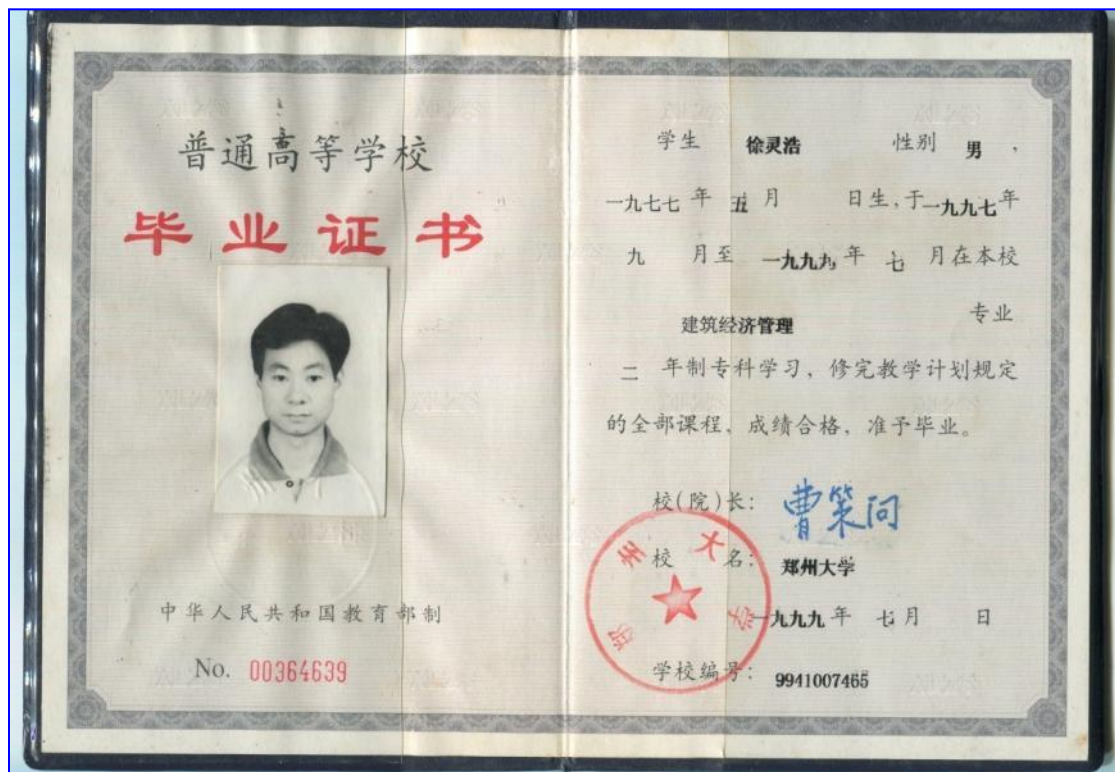 普通高等学校
毕业证书
中华人民共和国教育部制
No. 00364639
学生 徐灵浩 性别 男，
一九七七年五月 日生，于一九九七年
九 月至 一九九九年 七 月在本校
建筑经济管理 专业
二 年制专科学习，修完教学计划规定
的全部课程，成绩合格，准予毕业。
校(院)长： 曹策问
校 名： 郑州大学
郑州大学
一九九九年 七月 日
学校编号： 9941007465